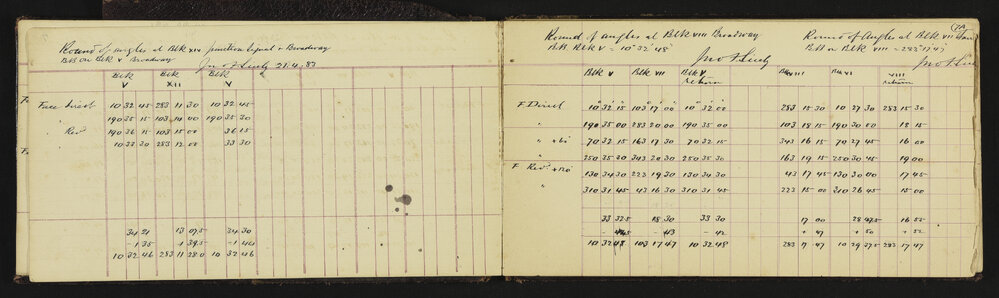 Round of Angles at Blk XII Junction Signal & Broadway
B.B. on Blk V Broadway
21.4.83
Blk Blk Blk
V XII V
Face Direct 10 32 45 283 11 30 10 32 45
190 35 15 103 14 00 190 35 30
Rev 190 36 15 103 15 00 36 15
10 33 30 283 12 00 33 30
34 21 13 07.5 34 30
-1 35 -1 39.5 -1 44
10 32 46 283 11 28.0 10 32 46
Round of Angles at Blk VIII Broadway
B.B. Blk V = 10° 32' 48"
Blk V Blk VII Blk V
return
F Direct 10 32 15 103 17 00 10 32 00
" 190 35 00 283 20 00 190 35 00
" +60 70 32 15 163 17 30 70 32 15
" 250 35 30 343 20 30 250 35 30
F Rev. +120 130 34 30 223 19 30 130 34 30
" 310 31 45 43 16 30 310 31 45
33 32.5 18 30 33 30
- 43 - 42
10 32 48 103 17 47 10 32 48
Round of Angles at Blk VII
B.B. on Blk VIII = 283° 17' 47"
VIII VI VIII
return
283 15 30 10 27 30 283 15 30
103 18 15 190 30 00 18 15
343 16 15 70 27 45 16 00
163 19 15 250 30 45 19 00
43 17 45 130 30 00 17 45
223 15 00 310 26 45 15 00
17 00 28 47.5 16 55
+ 47 + 50 + 52
283 17 47 10 29 37.5 283 17 47